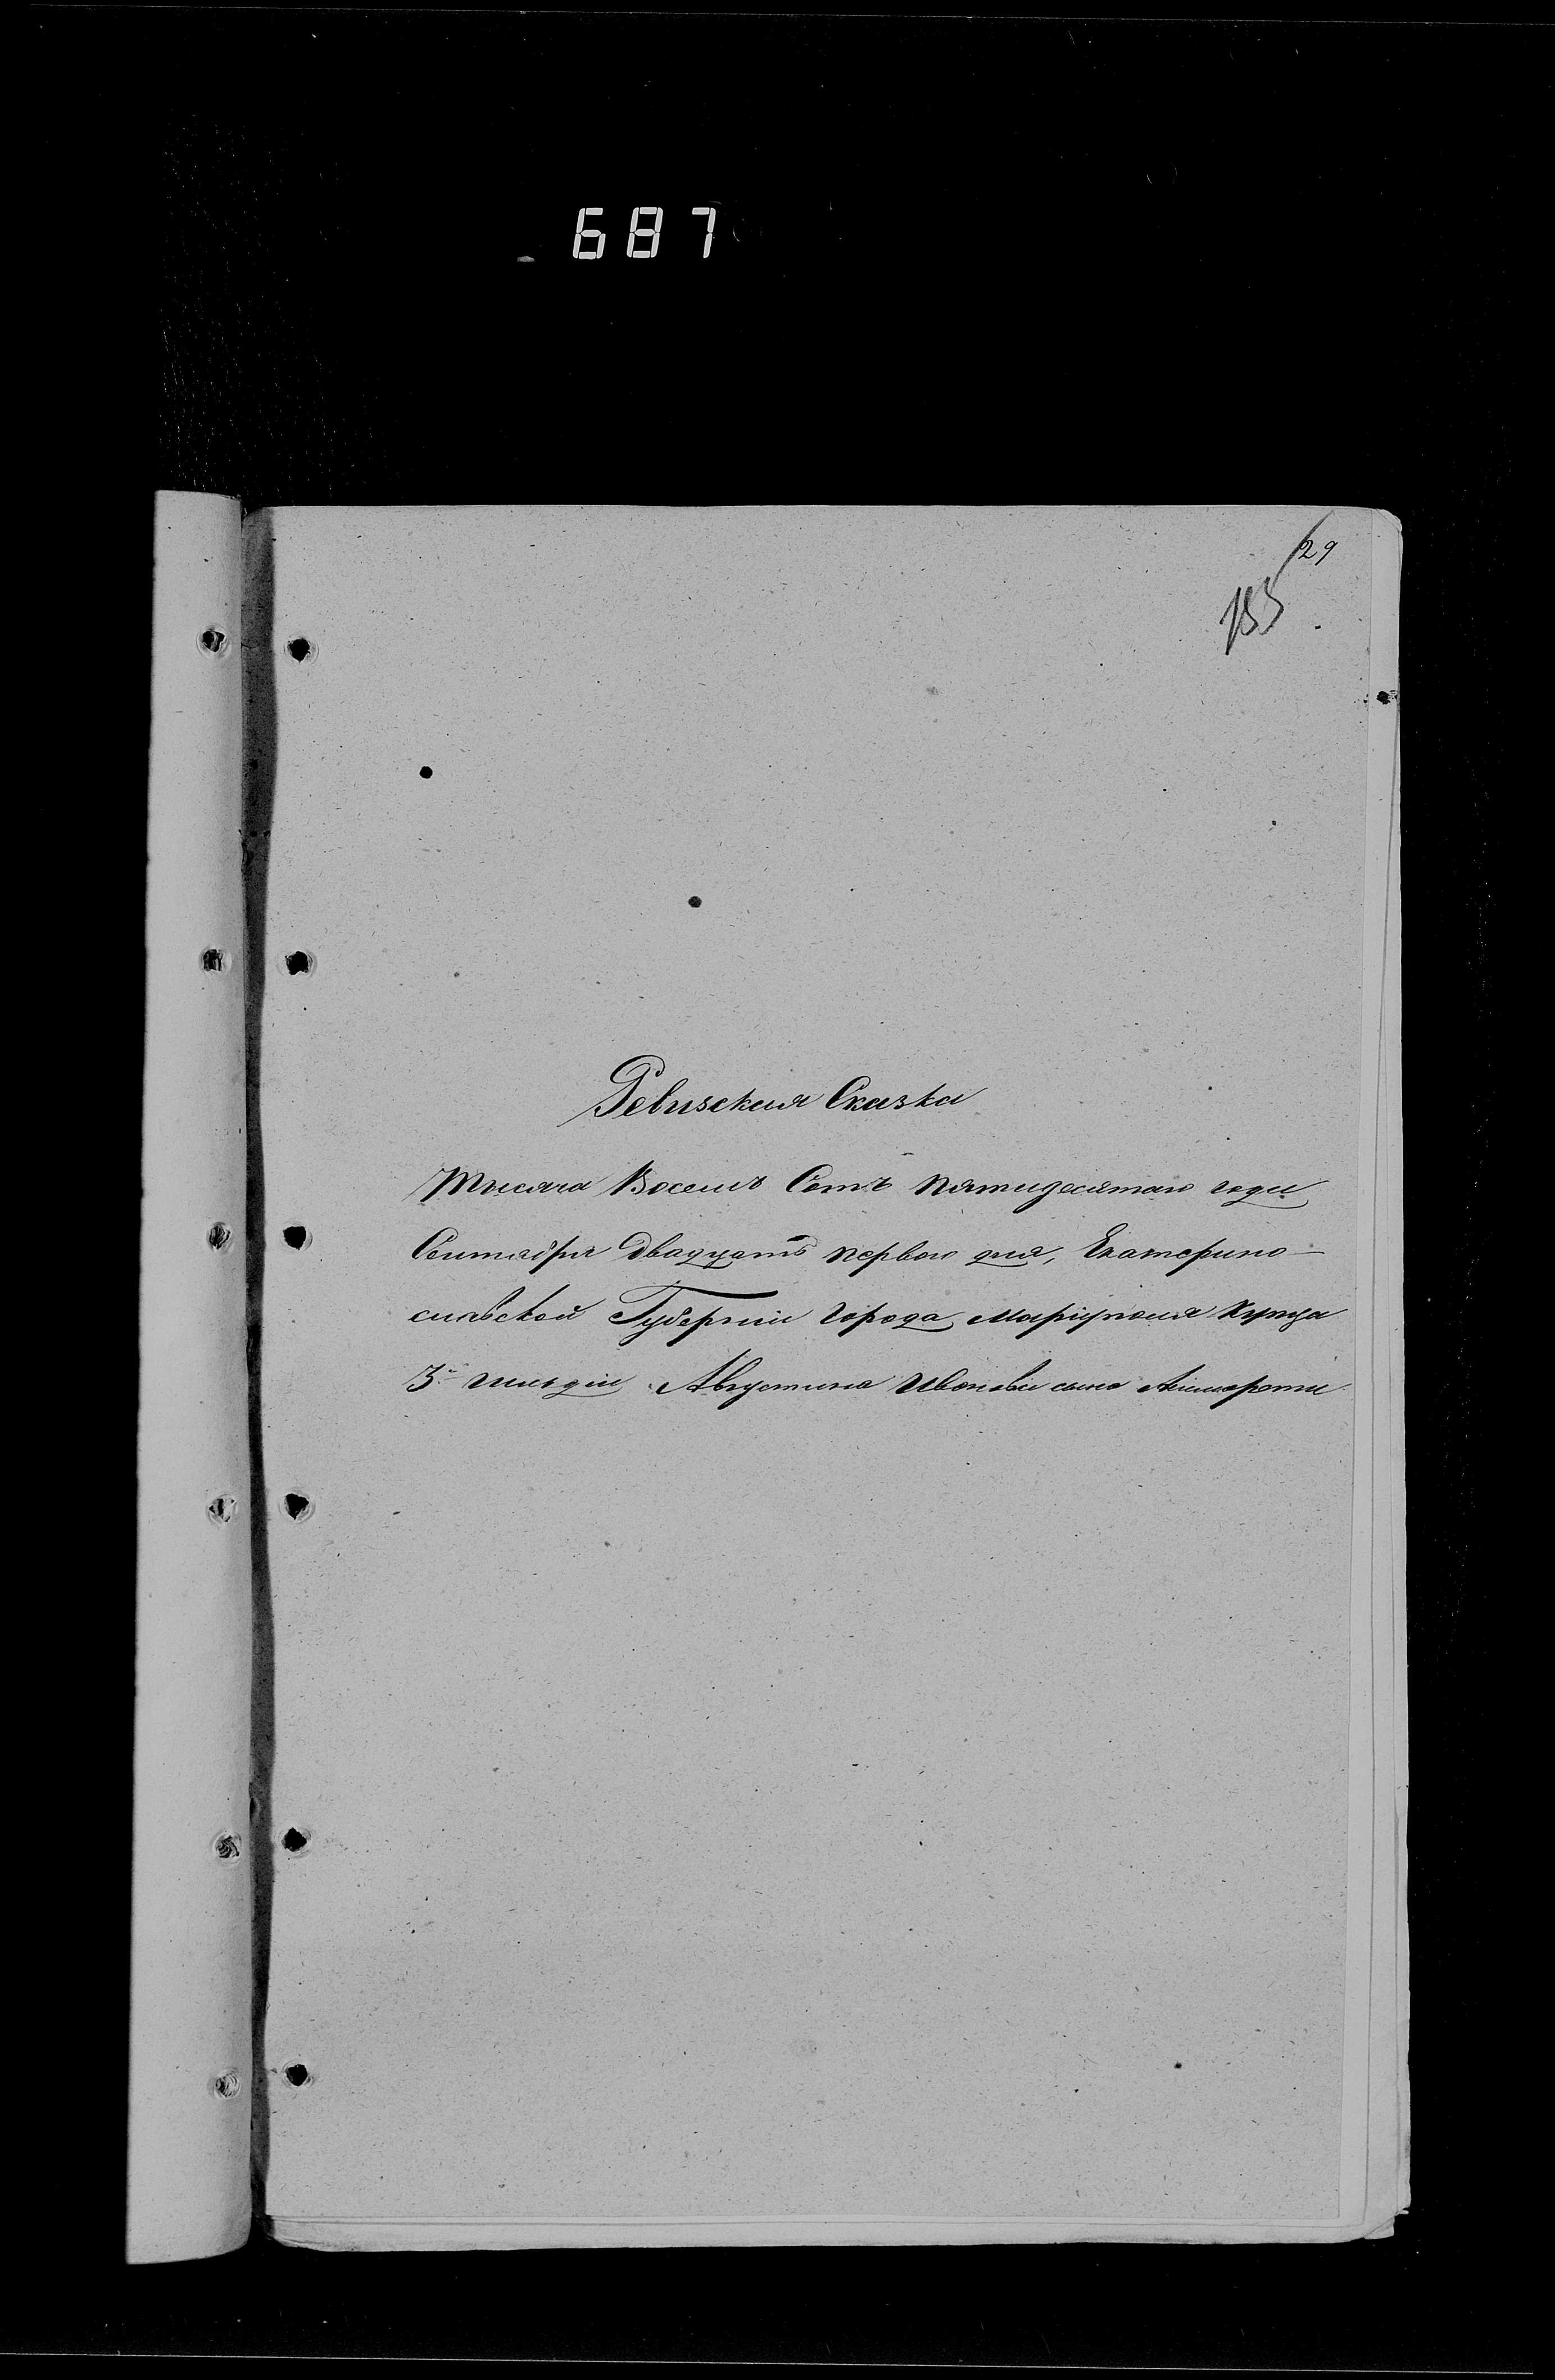 687
29
Ревизская Сказка
Тысяча Восемь Сотъ пятидесятаго года
Сентября двадцать перваго дня, Екатерино-
славской Губерніи города Маріуполя купца
3й гильдіи Августина Иванова сына